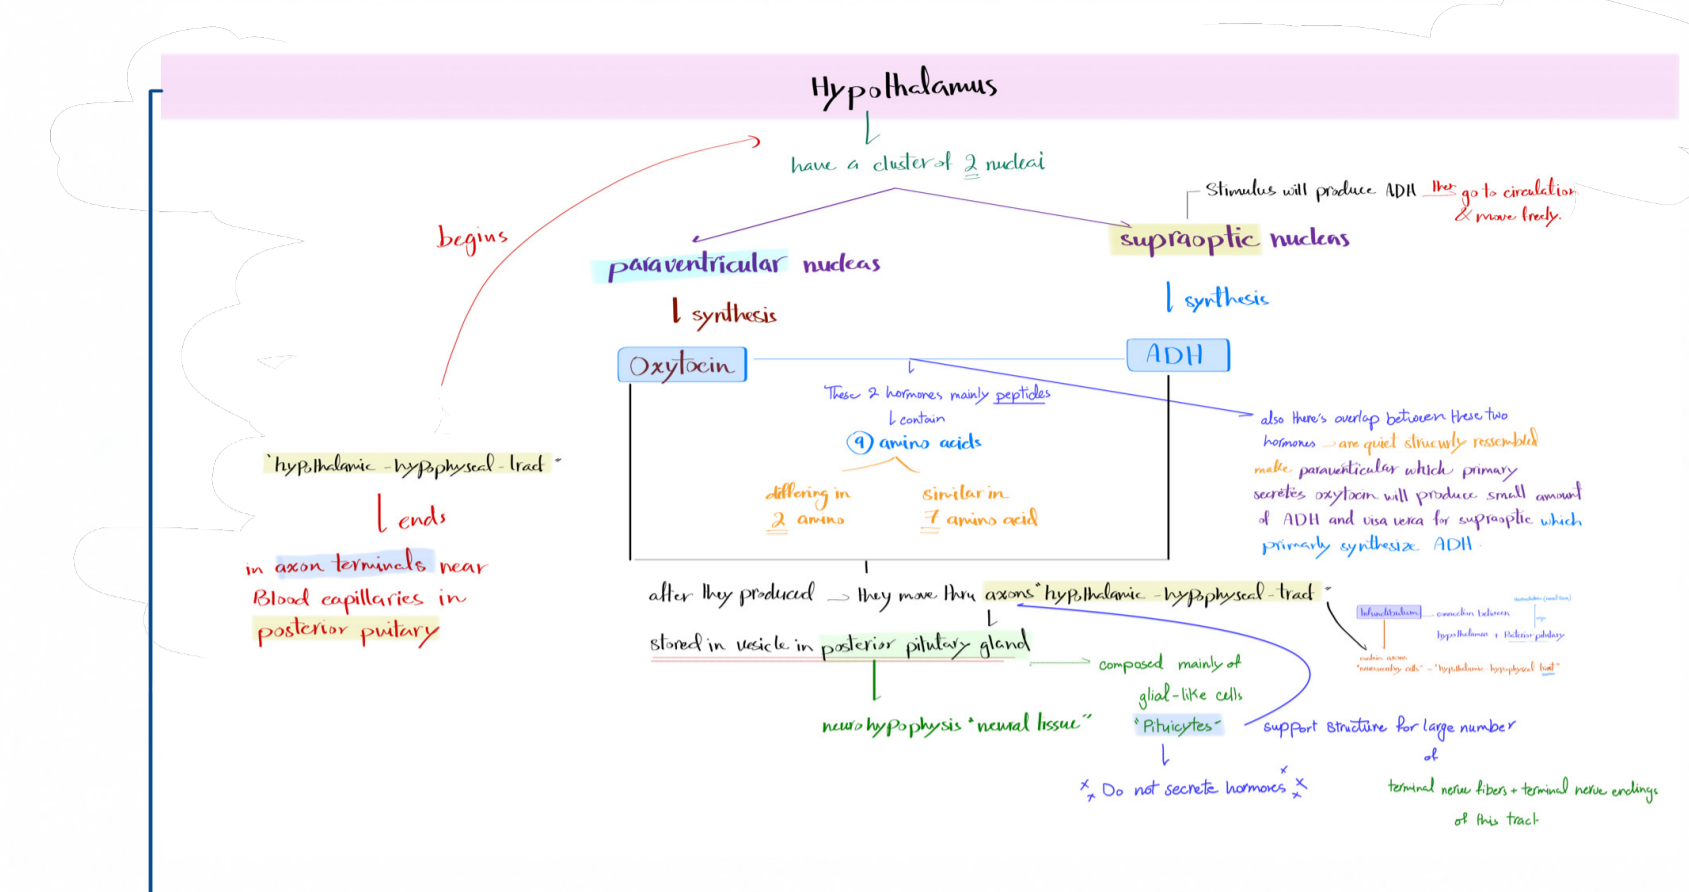 Hypothalamus
have a cluster of 2 nucleai
Stimulus will produce ADH then go to circulation
& move freely.
begins
supraoptic nucleas
paraventricular nucleas
synthesis
synthesis
Oxytocin
ADH
These 2 hormones mainly peptides
contain
9 amino acids
differing in
2 amino
similar in
7 amino acid
also there's overlap between these two
hormones are quiet strucurly ressembled
make paraventicular which primary
secretes oxytocin will produce small amount
of ADH and visa verca for supraoptic which
primarly synthesize ADH.
"hypothalamic - hypophyseal - tract"
ends
in axon terminals near
Blood capillaries in
posterior puitary
after they produced → they move thru axons "hypothalamic - hypophyseal - tract"
stored in vesicle in posterior pitutary gland
neurohypophysis "neural tissue"
composed mainly of
glial-like cells
"Pituicytes"
Do not secrete hormones
support structure for large number
of
terminal nerve fibers + terminal nerve endings
of this tract
Infundibulum
connection between
hypothalamus + Posterior pitutary
contain axons
cells" - "hypothalamic - hypophyseal tract"